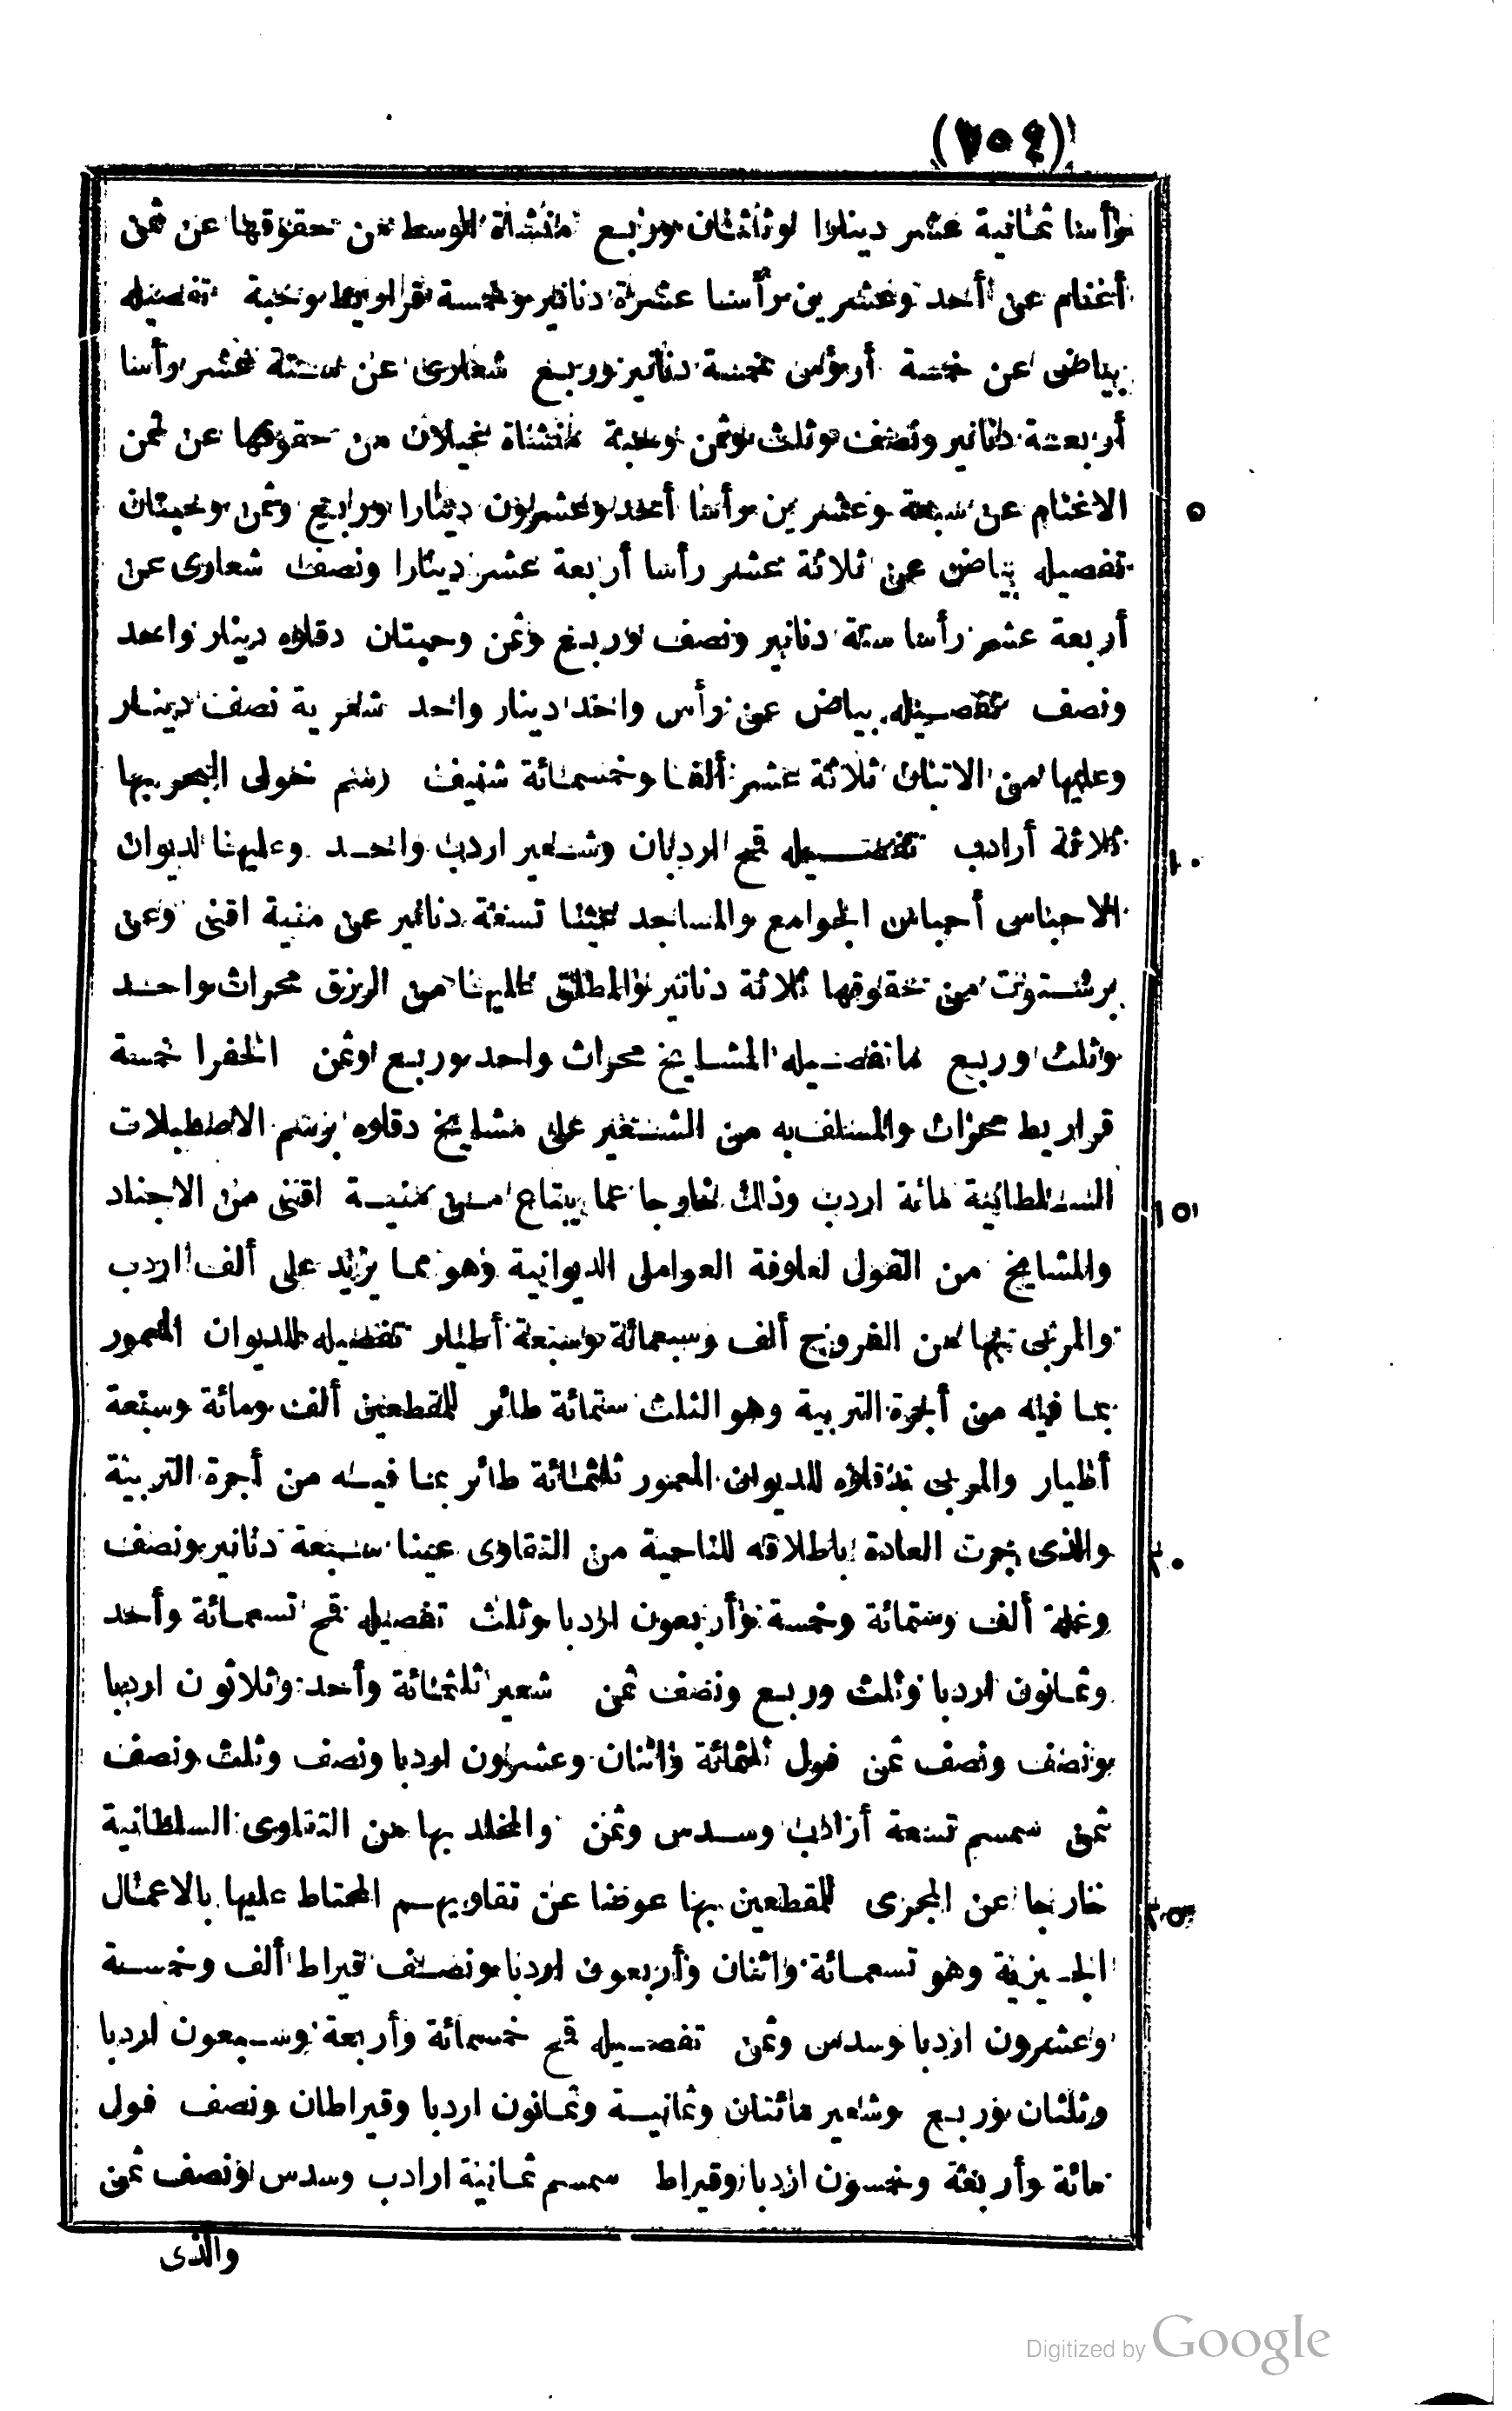 (١٥٤)
رأسا ثمانية عشر دينارا وثلثان وربع منشاة الوسط من حقوقها عن ثمن
أغنام عن أحد وعشرين رأسا عشرة دنانير وخمسة قراريط وحبة تفصيله
بياض عن خمسة أرؤس خمسة دنانير وربع شعارى عن ستة عشر رأسا
أربعة دنانير ونصف وثلث وثمن وحبة منشاة غيلان من حقوقها عن ثمن
الاغنام عن سبعة وعشرين رأسا أحد وعشرون دينارا وربع وثمن وحبتان
٥
تفصيله بياض عن ثلاثة عشر رأسا أربعة عشر دينارا ونصف شعارى عن
أربعة عشر رأسا ستة دنانير ونصف وربع وثمن وحبتان دقلوه دينار واحد
ونصف تفصيله بياض عن رأس واحد دينار واحد شعرية نصف دينار
وعليها من الاتبان ثلاثة عشر ألفا وخمسمائة شنيف رسم خولى البحر بها
ثلاثة أرادب تفصيله قمح اردبان وشعير اردب واحد وعليها لديوان
١٠
الاحباس أحباس الجوامع والمساجد عينا تسعة دنانير عن منية اقنى وعن
برشتوت من حقوقها ثلاثة دنانير والمطلق عليها من الرزق محراث واحد
وثلث وربع ما تفصيله المشايخ محراث واحد وربع وثمن الخفرا خمسة
قراريط محراث والمستلف به من الشعير على مشايخ دقلوه برسم الاصطبلات
السلطانية مائة اردب وذلك خارجا عما يبتاع من منية اقنى من الاجناد
١٥
والمشايخ من الفول لعلوفة العوامل الديوانية وهو مما يزيد على ألف اردب
والمربى بها من الفروج ألف وسبعمائة وسبعة أطيار تفصيله للديوان المعمور
بما فيه من أجرة التربية وهو الثلث ستمائة طائر للمقطعين ألف ومائة وسبعة
أطيار والمربى بدقلوه للديوان المعمور ثلثمائة طائر بما فيه من أجرة التربية
والذى جرت العادة باطلاقه للناحية من التقاوى عينا سبعة دنانير ونصف
٢٠
وغلة ألف وستمائة وخمسة وأربعون اردبا وثلث تفصيله قمح تسعمائة وأحد
وثمانون اردبا وثلث وربع ونصف ثمن شعير ثلثمائة وأحد وثلاثون اردبا
ونصف ونصف ثمن فول ثلثمائة واثنان وعشرون اردبا ونصف وثلث ونصف
ثمن سمسم تسعة أرادب وسدس وثمن والمخلد بها من التقاوى السلطانية
خارجا عن المجرى للمقطعين بها عوضا عن تقاويهم المحتاط عليها بالاعمال
٢٥
الجيزية وهو تسعمائة واثنان وأربعون اردبا ونصف قيراط ألف وخمسة
وعشرون اردبا وسدس وثمن تفصيله قمح خمسمائة وأربعة وسبعون اردبا
وثلثان وربع وشعير مائتان وثمانية وثمانون اردبا وقيراطان ونصف فول
مائة وأربعة وخمسون اردبا وقيراط سمسم ثمانية ارادب وسدس ونصف ثمن
والذى
Digitized by Google